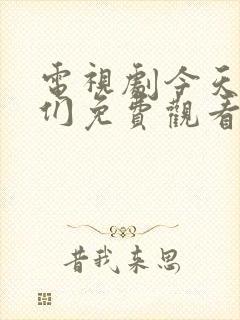 電視劇今天
们免費觀看
昔我来思